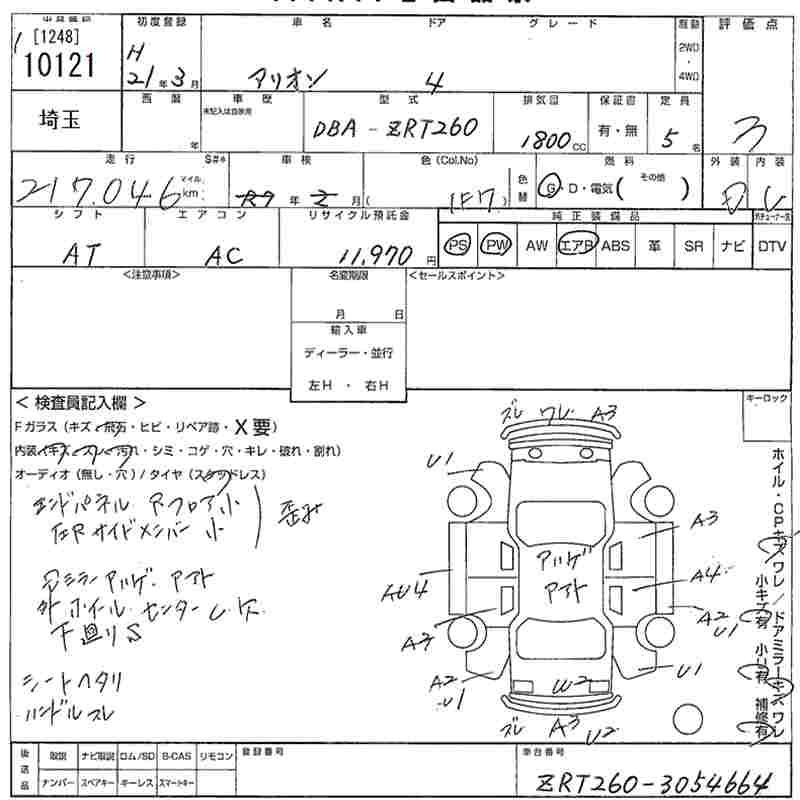 [1248]
10121
初度登録
車名
ドア
グレード
駆動
評価点
H
21年3月
アリオン
4
2WD
・
4WD
3
埼玉
西暦
年
車歴
未記入は自家用
型式
DBA-ZRT260
排気量
1800cc
保証書
有・無
定員
5名
走行
S#*
車検
色(Col.No)
燃料
外装
内装
217,046
マイル
km
年
月(
1F7)
色替
G・D・電気(その他)
D
シフト
エアコン
リサイクル預託金
純正装備品
AT
AC
11,970円
PS
PW
AW
エアB
ABS
革
SR
ナビ
DTV
<注意事項>
名変期限
<セールスポイント>
月 日
輸入車
ディーラー・並行
左H ・ 右H
<検査員記入欄>
キーロック
Fガラス(キズ・飛石・ヒビ・リペア跡・X要)
内装(キズ・スレ・汚れ・シミ・コゲ・穴・キレ・破れ・割れ)
オーディオ(無し・穴)/タイヤ(スタッドレス)
エンドパネル Rフロア小
左Rサイドメンバー小
歪み
ミラーアルゲ・アマト
外ホイルセンターレス
下廻りS
シートヘタリ
ハンドルスレ
ズレ ワレ A3
U1
A3
アルゲ
アマト
A4
AU4
A2
U1
A3
A2
U1
U1
W2
ズレ A3
U2
ホイル・CPキズワレ/ドアミラーキズワレ
小キズ有 小U有 補修有
後送品
取説
ナビ取説
ロム/SD
B-CAS
リモコン
登録番号
車台番号
ナンバー
スペアキー
キーレス
スマートキー
ZRT260-3054664